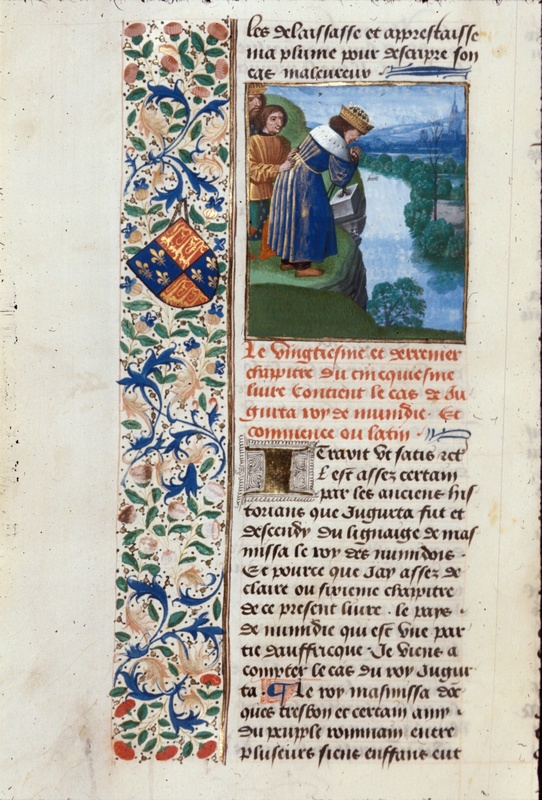 les delaissasse et apprestaisse
ma plume pour descripre son
cas maleureux
Le vingtiesme et derrenier
chapitre du cincquiesme
livre Contient le cas de Ju
gurta roy de numidie. Et
commence ou latin.
Et est assez certain
par les anciens his
torians que Jugurta fut et
descendy du lignaige de mas
missa le roy des numidois.
Et pource que Jay assez de
claire ou sixieme chapitre
de ce present livre. le pays
de numidie qui est une par
tie dauffricque. Je viens a
compter le cas du roy Jugur
ta. Le roy masinissa doc
ques tresbon et certain amy
du peuple rommain entre
pluseurs siens enffans eut